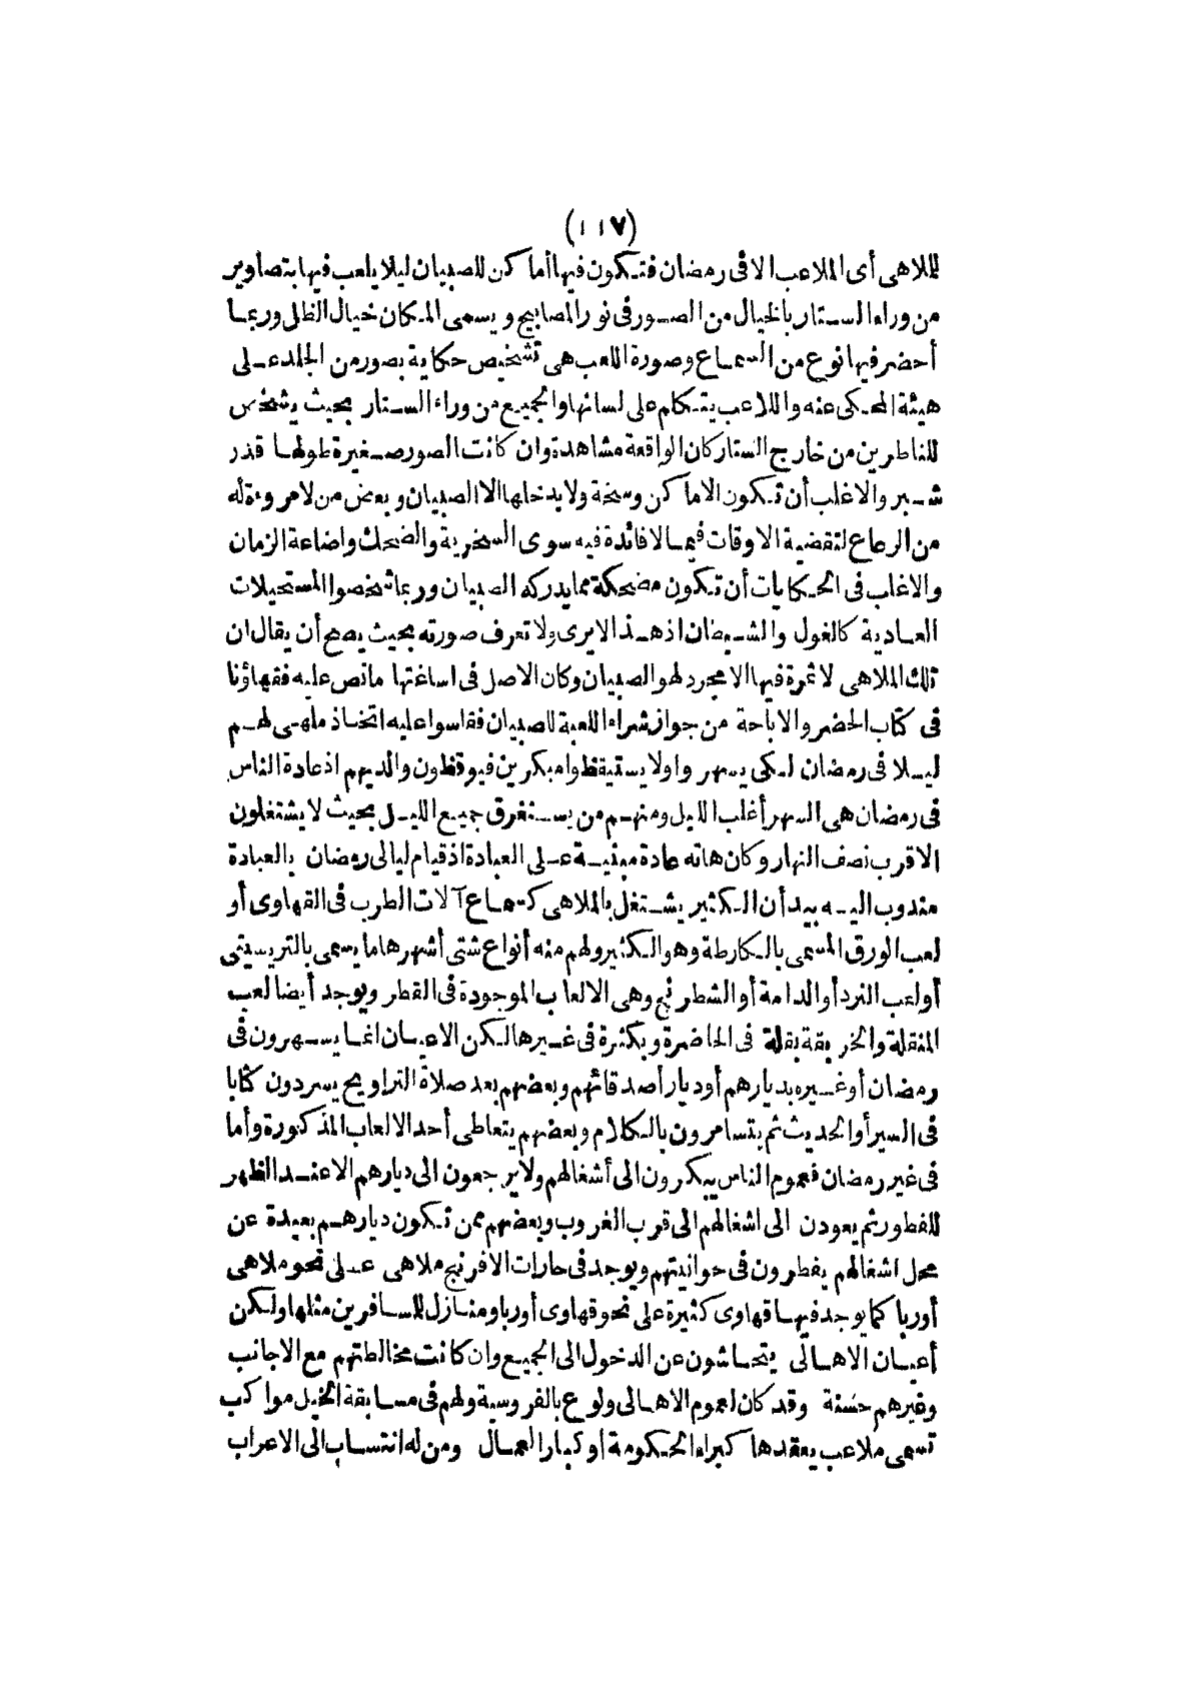 (١١٧)
للملاهى أى الملاعب الا فى رمضان فتكون فيها أماكن للصبيان ليلا يلعب فيها بتصاوير
من وراء الستار بالخيال من الصور فى نور المصابيح ويسمى المكان خيال الظل وربما
أحضر فيها نوع من السماع وصورة اللعب هى تشخيص حكاية بصور من الجلد على
هيئة المحكى عنه واللاعب يتكلم على لسانها والجميع من وراء الستار بحيث يشخص
للناظرين من خارج الستار كان الواقعة مشاهدة وان كانت الصور صغيرة طولها قدر
شبر والاغلب أن تكون الاماكن وسخة ولا يدخلها الا الصبيان وبعض من لا مروءة له
من الرعاع لتقضية الاوقات فيما لا فائدة فيه سوى السخرية والضحك واضاعة الزمان
والاغلب فى الحكايات أن تكون مضحكة مما يدركه الصبيان وربما شخصوا المستحيلات
العادية كالغول والشيطان اذ هذا لا يرى ولا تعرف صورته بحيث يصح أن يقال ان
تلك الملاهى لا ثمرة فيها الا مجرد لهو الصبيان وكان الاصل فى اساغتها ما نص عليه فقهاؤنا
فى كتاب الحضر والاباحة من جواز شراء اللعبة للصبيان فقاسوا عليه اتخاذ ملهى لهم
ليلا فى رمضان لكى يسهروا ولا يستيقظوا مبكرين فيوقظون والديهم اذ عادة الناس
فى رمضان هى السهر أغلب الليل ومنهم من يستغرق جميع الليل بحيث لا يشتغلون
الا قرب نصف النهار وكان هاته عادة مبنية على العبادة اذ قيام ليالى رمضان بالعبادة
مندوب اليه بيد أن الكثير يشتغل بالملاهى كسماع آلات الطرب فى القهاوى أو
لعب الورق المسمى بالكارطة وهو الكثير ولهم منه أنواع شتى أشهرها ما يسمى بالتريسيتى
أو لعب النرد أو الدامة أو الشطرنج وهى الالعاب الموجودة فى القطر ويوجد أيضا لعب
المنقلة والخربقة بقلة فى الحاضرة وبكثرة فى غيرها لكن الاعيان انما يسهرون فى
رمضان أو غيره بديارهم أو ديار أصدقائهم وبعضهم بعد صلاة التراويح يسردون كتابا
فى السير أو الحديث ثم يتسامرون بالكلام وبعضهم يتعاطى أحد الالعاب المذكورة وأما
فى غير رمضان فعموم الناس يبكرون الى أشغالهم ولا يرجعون الى ديارهم الا عند الظهر
للفطور ثم يعودن الى اشغالهم الى قرب الغروب وبعضهم ممن تكون ديارهم بعيدة عن
محل اشغالهم يفطرون فى حوانيتهم ويوجد فى حارات الافرنج ملاهى على نحو ملاهى
أوربا كما يوجد فيها قهاوى كثيرة على نحو قهاوى أوربا ومنازل للمسافرين مثلها ولكن
أعيان الاهالى يتحاشون عن الدخول الى الجميع وان كانت مخالطتهم مع الاجانب
وغيرهم حسنة وقد كان لعموم الاهالى ولوع بالفروسية ولهم فى مسابقة الخيل مواكب
تسمى ملاعب يعقدها كبراء الحكومة أو كبار العمال ومن له انتساب الى الاعراب